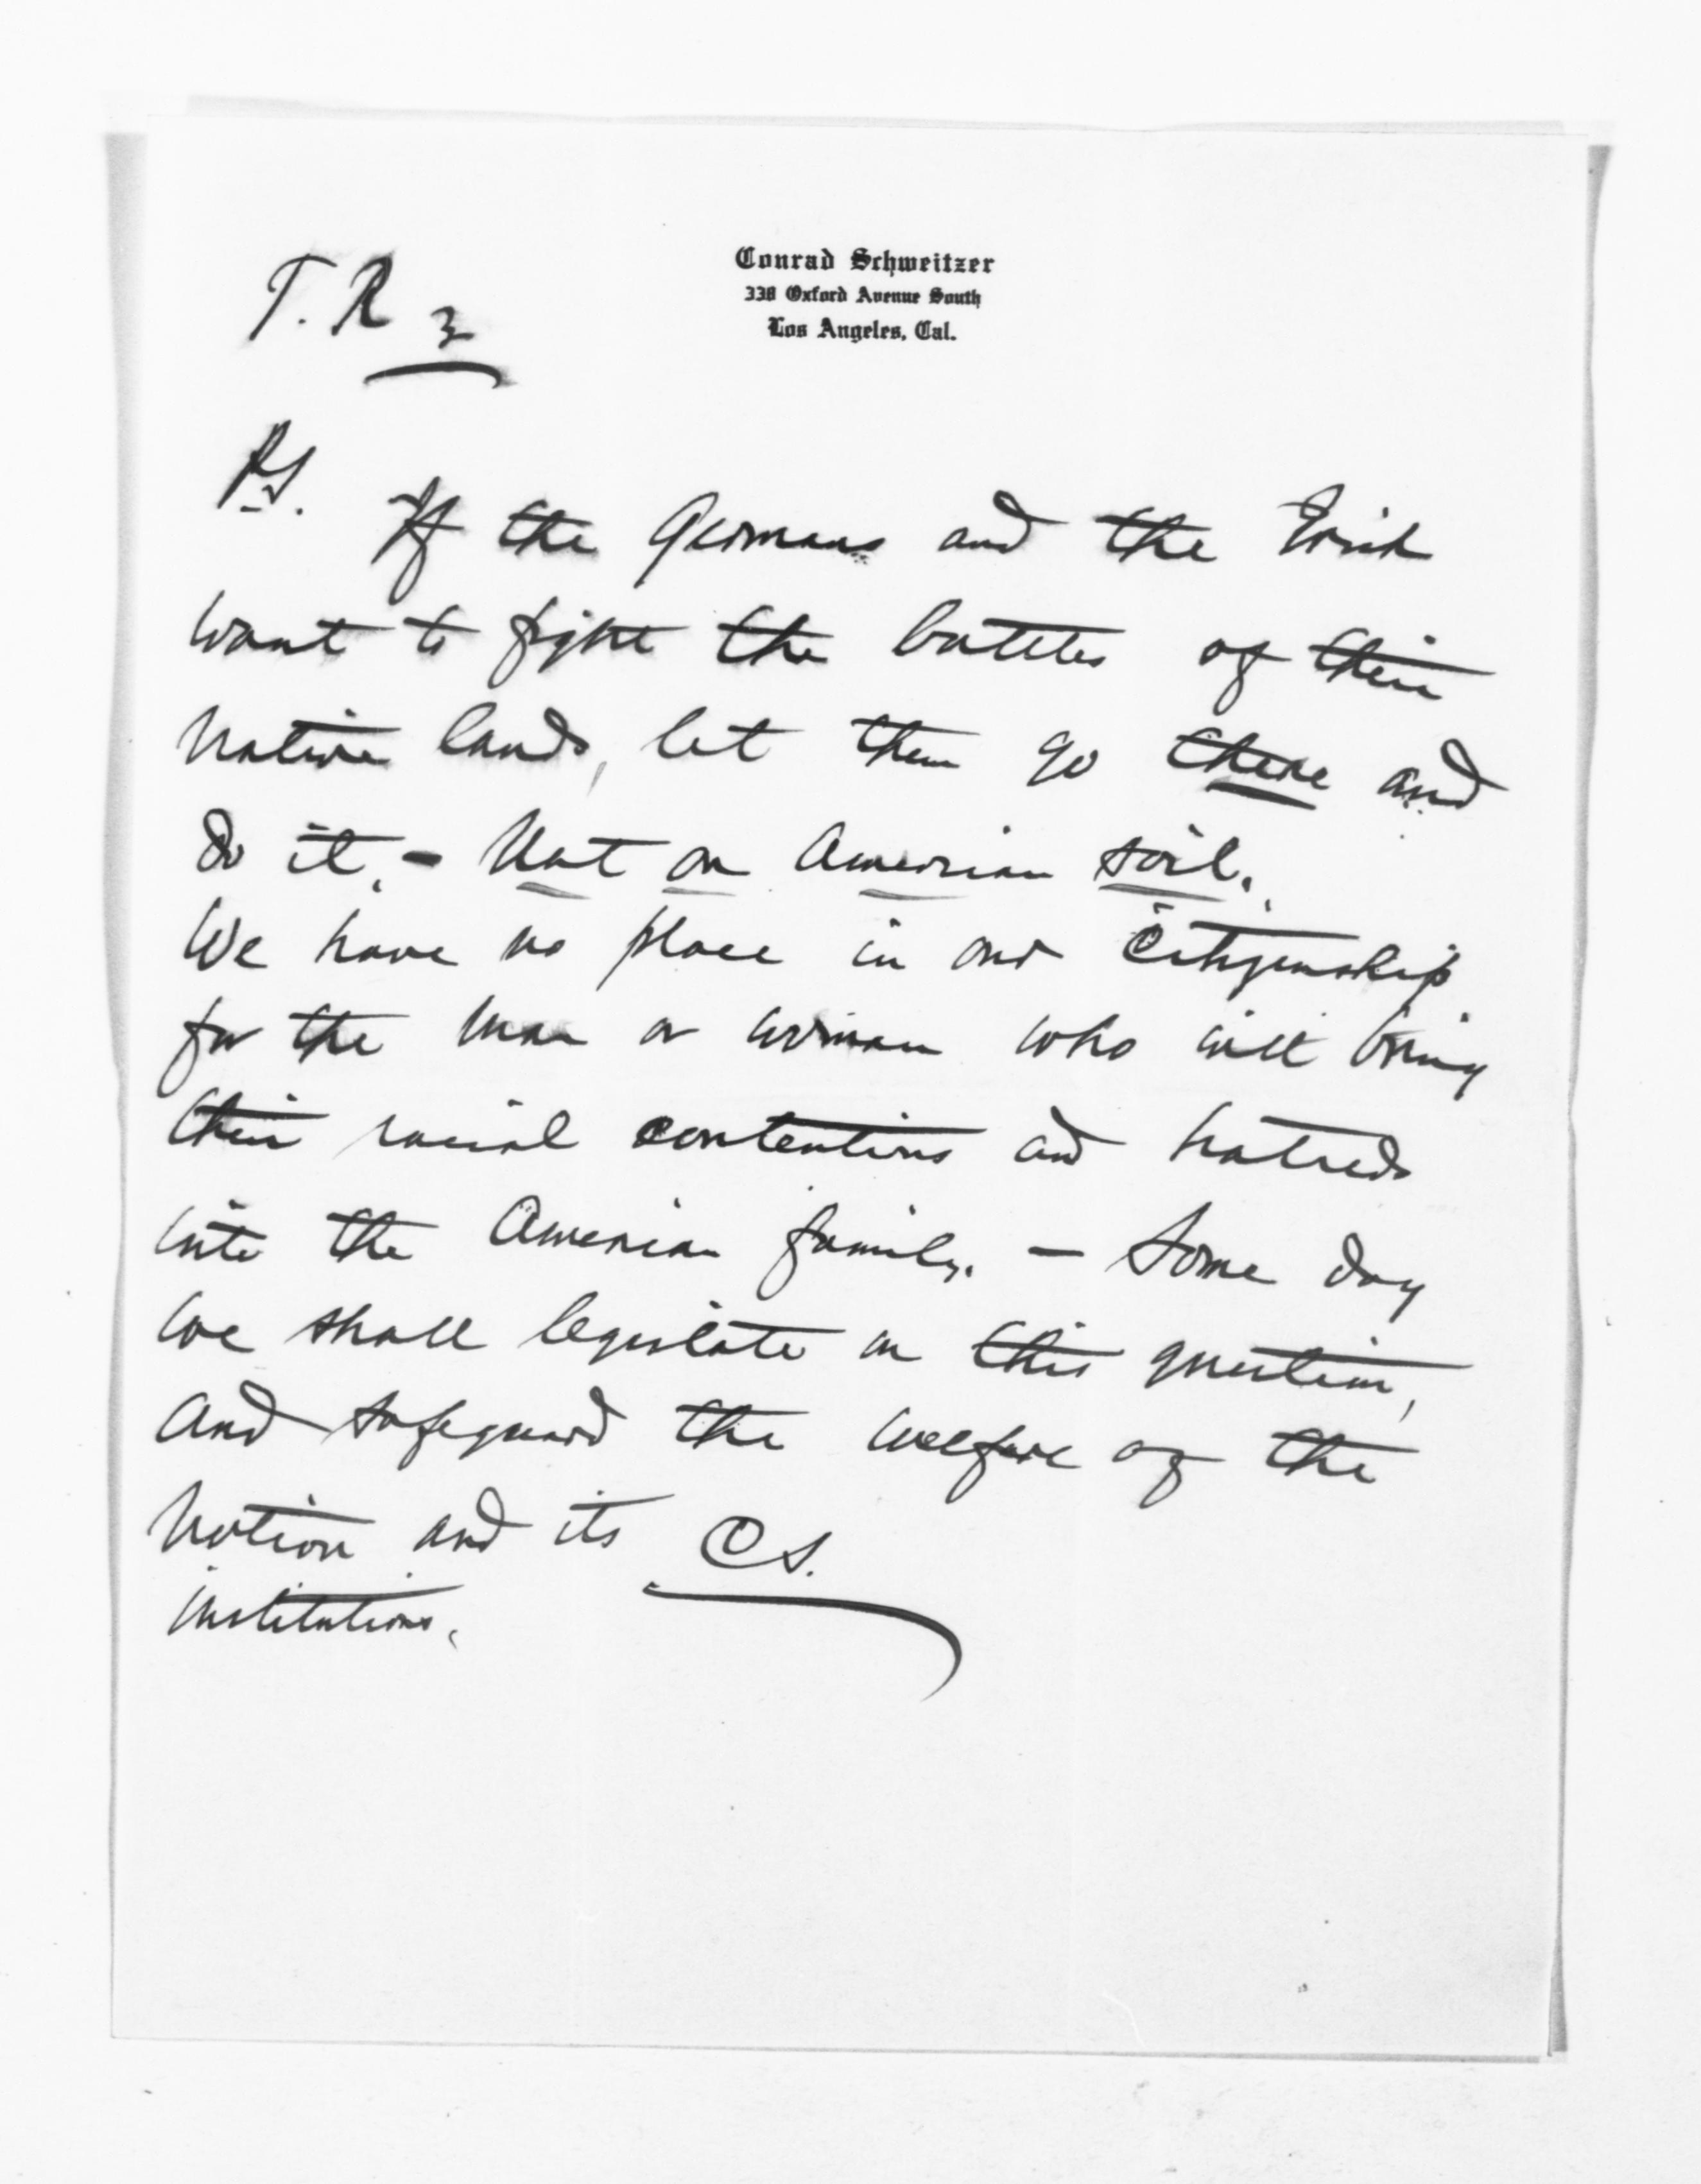 Conrad Schweitzer
338 Oxford Avenue South
Los Angeles, Cal.
T. R 3
P.S.
If the Germans and the Irish
want to fight the battles of their
native lands, let them go there and
do it, - Not on American soil.
We have no place in our citizenship
for the man or woman who will bring
their racial contentions and hatreds
into the American family. - Some day
we shall legislate on this question,
and safeguard the welfare of the
nation and its
institutions.
C S.